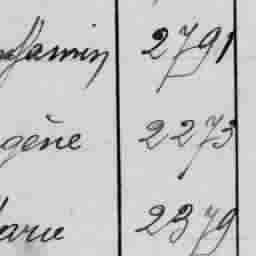 njamin 2791
gène 2273
arie 2379